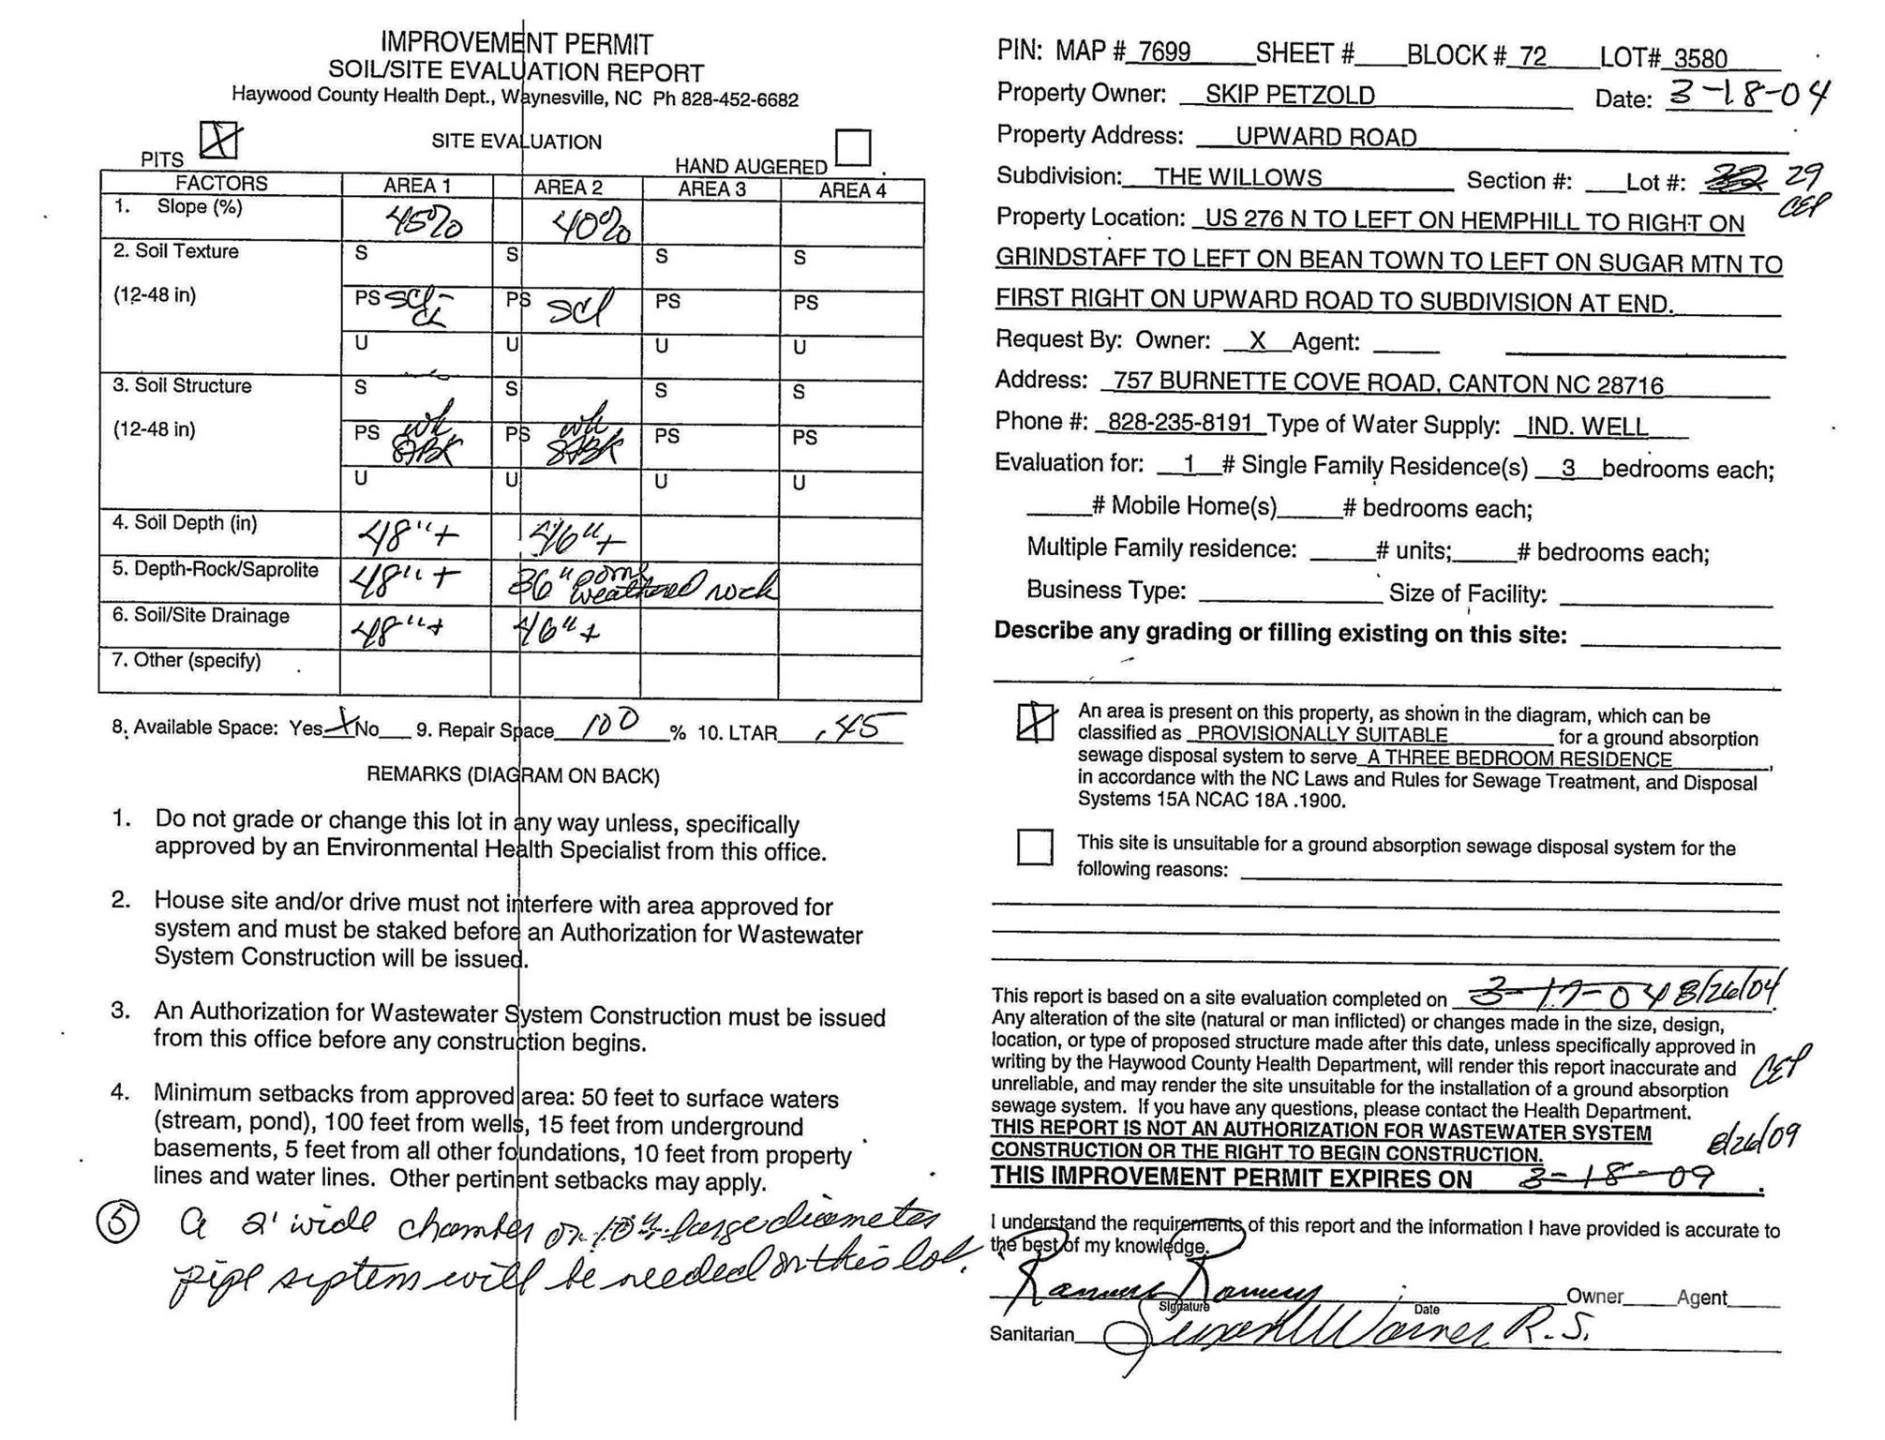 IMPROVEMENT PERMIT
SOIL/SITE EVALUATION REPORT
Haywood County Health Dept., Waynesville, NC Ph 828-452-6682
PITS X SITE EVALUATION HAND AUGERED
FACTORS AREA 1 AREA 2 AREA 3 AREA 4
1. Slope (%) 45% 40%
2. Soil Texture S S S S
(12-48 in) PS SCL- CL PS SCL PS PS
U U U U
3. Soil Structure S S S S
(12-48 in) PS wk SBK PS wk SBK PS PS
U U U U
4. Soil Depth (in) 48"+ 46"+
5. Depth-Rock/Saprolite 48"+ 36" weathered rock
6. Soil/Site Drainage 48"+ 46"+
7. Other (specify)
8. Available Space: Yes X No 9. Repair Space 100 % 10. LTAR .45
REMARKS (DIAGRAM ON BACK)
1. Do not grade or change this lot in any way unless, specifically
approved by an Environmental Health Specialist from this office.
2. House site and/or drive must not interfere with area approved for
system and must be staked before an Authorization for Wastewater
System Construction will be issued.
3. An Authorization for Wastewater System Construction must be issued
from this office before any construction begins.
4. Minimum setbacks from approved area: 50 feet to surface waters
(stream, pond), 100 feet from wells, 15 feet from underground
basements, 5 feet from all other foundations, 10 feet from property
lines and water lines. Other pertinent setbacks may apply.
5 A 2' wide chamber or 10" large diameter
pipe system will be needed on this lot.
PIN: MAP # 7699 SHEET # BLOCK # 72 LOT# 3580
Property Owner: SKIP PETZOLD Date: 3-18-04
Property Address: UPWARD ROAD
Subdivision: THE WILLOWS Section #: Lot #: 29
CEP
Property Location: US 276 N TO LEFT ON HEMPHILL TO RIGHT ON
GRINDSTAFF TO LEFT ON BEAN TOWN TO LEFT ON SUGAR MTN TO
FIRST RIGHT ON UPWARD ROAD TO SUBDIVISION AT END.
Request By: Owner: X Agent:
Address: 757 BURNETTE COVE ROAD, CANTON NC 28716
Phone #: 828-235-8191 Type of Water Supply: IND. WELL
Evaluation for: 1 # Single Family Residence(s) 3 bedrooms each;
# Mobile Home(s) # bedrooms each;
Multiple Family residence: # units; # bedrooms each;
Business Type: Size of Facility:
Describe any grading or filling existing on this site:
X An area is present on this property, as shown in the diagram, which can be
classified as PROVISIONALLY SUITABLE for a ground absorption
sewage disposal system to serve A THREE BEDROOM RESIDENCE,
in accordance with the NC Laws and Rules for Sewage Treatment, and Disposal
Systems 15A NCAC 18A .1900.
This site is unsuitable for a ground absorption sewage disposal system for the
following reasons:
This report is based on a site evaluation completed on 3-17-04 8/26/04.
Any alteration of the site (natural or man inflicted) or changes made in the size, design,
location, or type of proposed structure made after this date, unless specifically approved in
writing by the Haywood County Health Department, will render this report inaccurate and
unreliable, and may render the site unsuitable for the installation of a ground absorption
sewage system. If you have any questions, please contact the Health Department.
CEP
THIS REPORT IS NOT AN AUTHORIZATION FOR WASTEWATER SYSTEM
CONSTRUCTION OR THE RIGHT TO BEGIN CONSTRUCTION.
8/26/09
THIS IMPROVEMENT PERMIT EXPIRES ON 3-18-09.
I understand the requirements of this report and the information I have provided is accurate to
the best of my knowledge.
Owner Agent
Signature Date
Sanitarian Warner R.S.